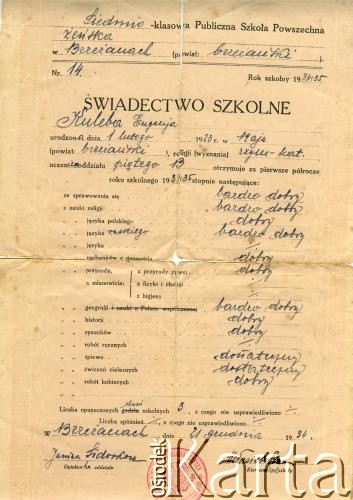 Siedmio -klasowa Publiczna Szkoła Powszechna
żeńska
w Brzeżanach (powiat: brzeżański).
Nr. 14. Rok szkolny 1934/35
ŚWIADECTWO SZKOLNE
Kuleba Eugenja
urodzona dnia 1 lutego 1923 r. w
(powiat: brzeżański), religji (wyznania) rzym.-kat.
uczenica oddziału piątego B otrzymuje za pierwsze półrocze
roku szkolnego 1934/35 stopnie następujące:
ze sprawowania się bardzo dobry
z nauki religji bardzo dobry
„ „ języka polskiego dobry
„ „ języka ruskiego bardzo dobry
„ „ języka
„ „ rachunków z geometrją dobry
„ „ przyrody, z przyrody żywej dobry
a mianowicie z fizyki i chemji
z higjeny
„ „ geografji i nauki o Polsce współczesnej bardzo dobry
„ „ historji dobry
„ „ rysunków dobry
„ „ robót ręcznych
„ „ śpiewu dostateczny
„ „ ćwiczeń cielesnych dostateczny
„ „ robót kobiecych dobry
Liczba opuszczonych dni godzin szkolnych 3, z czego nie usprawiedliwiono
Liczba spóźnień, z czego nie usprawiedliwiono
w Brzeżanach, dnia 21 grudnia 1934.
Janina
Opiekun oddziału
ośrodek
Karta